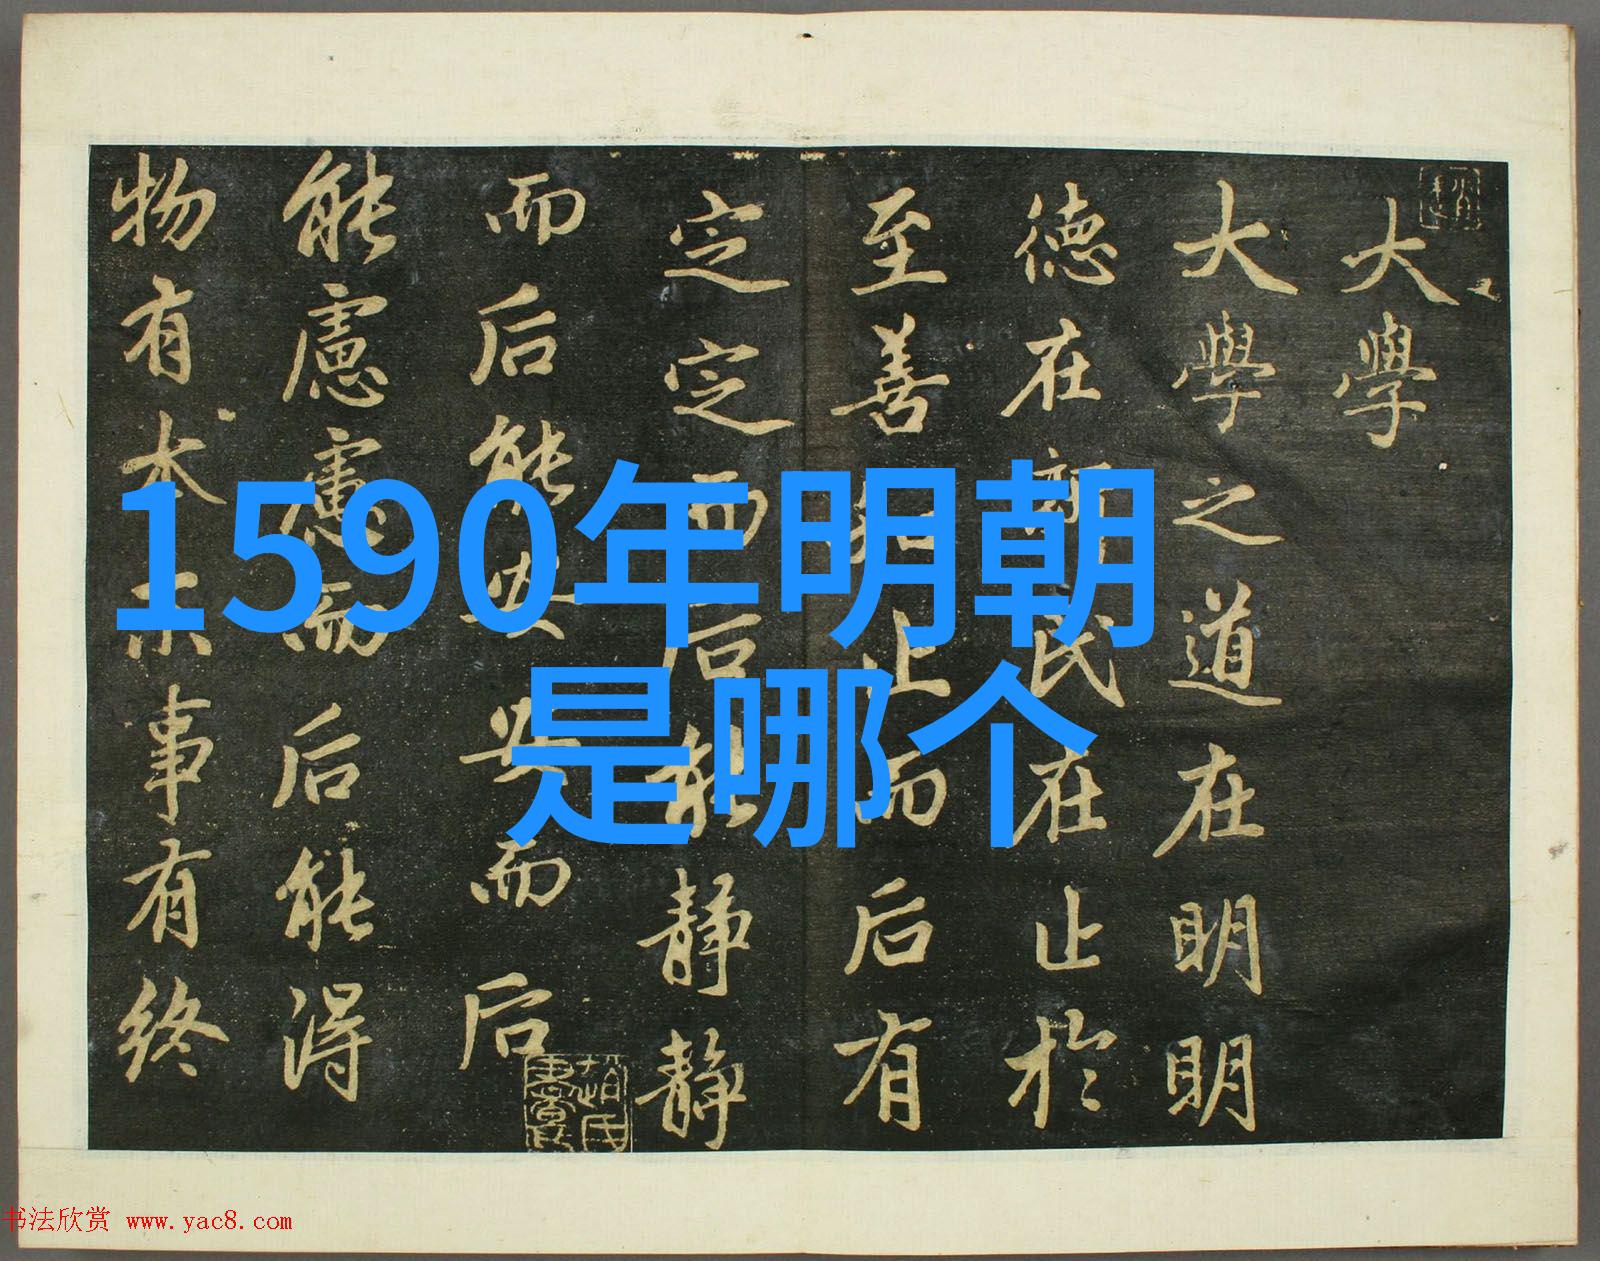 1590年明朝
是哪个
大學
大學之道在明明
德在新民在止於
至善知止而后有
定定而后能靜靜
而后能安安而后
能慮慮而后能得
物有本末事有終
书法欣赏 www.yac8.com